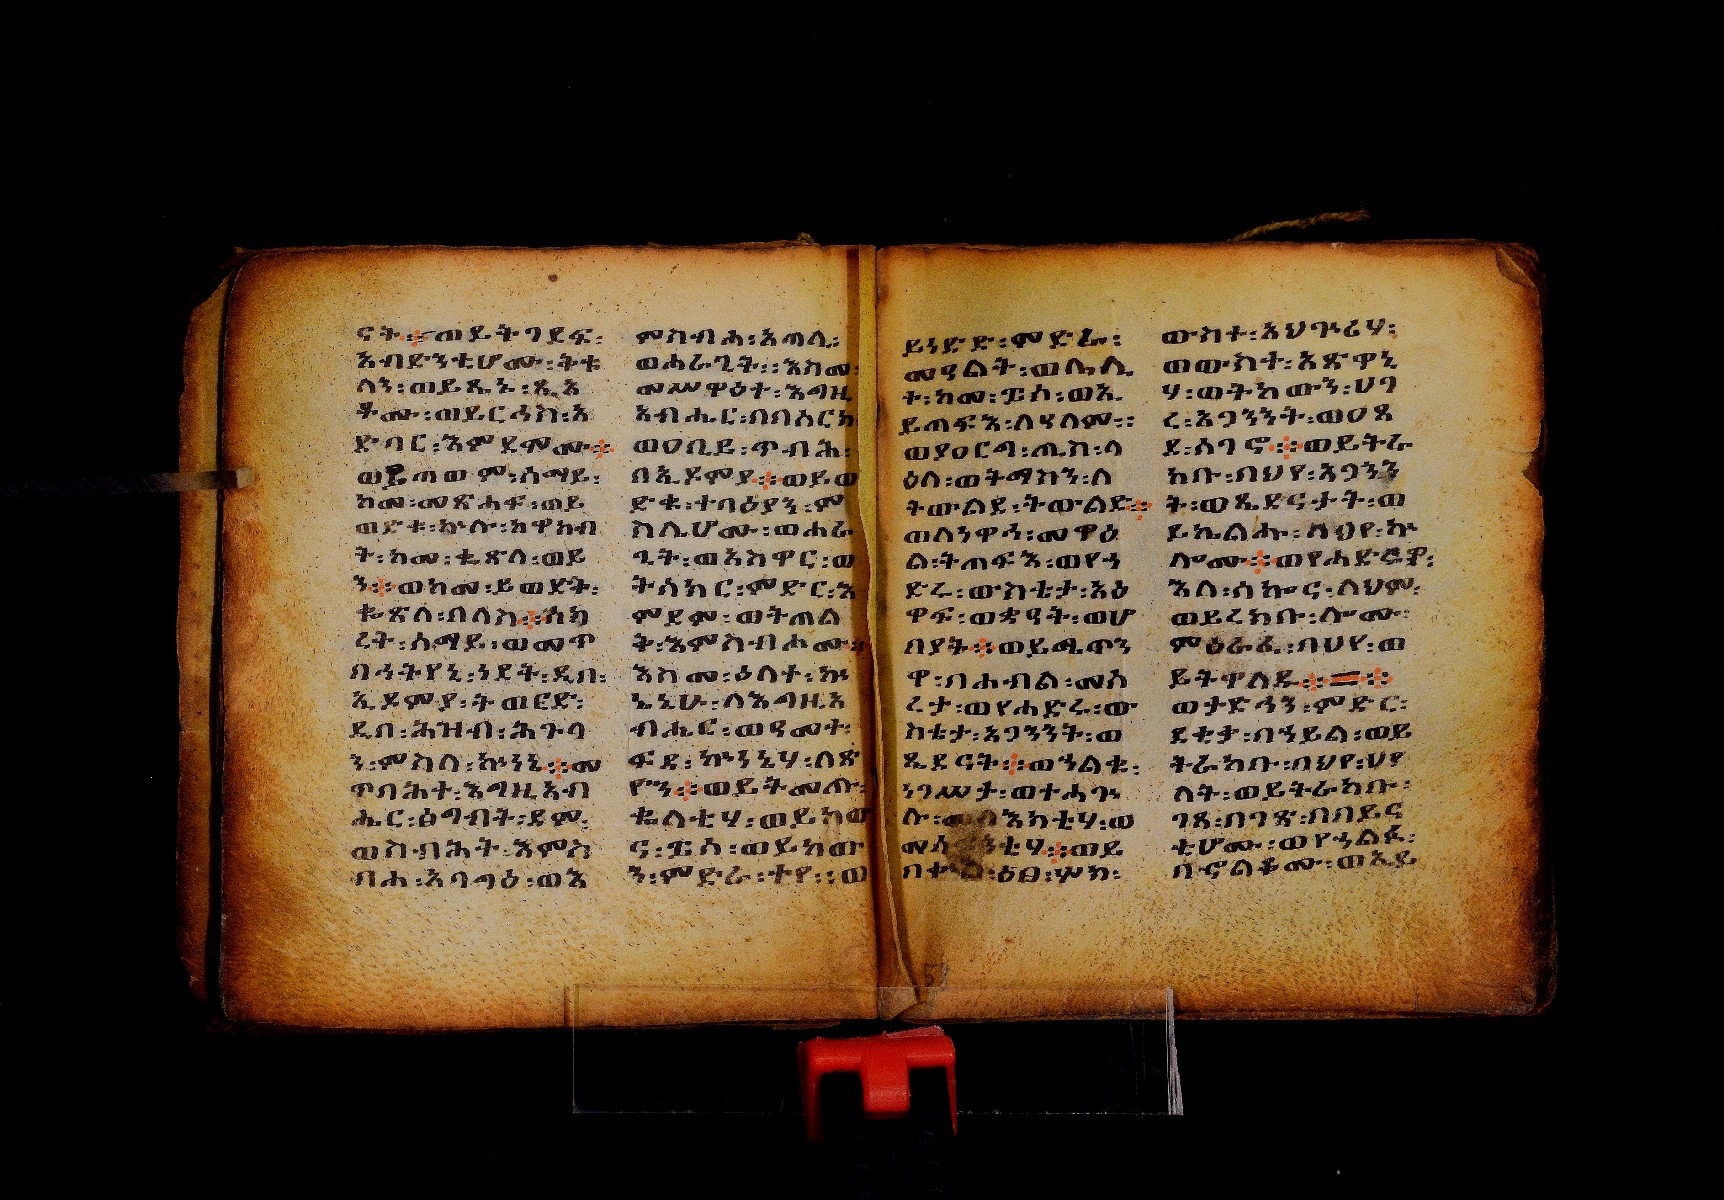 ናት ። ወይትገደፍ ፡
አብድንቲሆሙ ፡ ትቱ
ላን ፡ ወይጼኑ ፡ ጼአ
ቶሙ ፡ ወይርኅስ ፡ አ
ድባር ፡ እምደሞሙ ።
ወይጠወም ፡ ሰማይ ፡
ከመ ፡ መጽሐፍ ፡ ወይ
ወድቁ ፡ ኵሉ ፡ ከዋክብ
ት ፡ ከመ ፡ ቈጽለ ፡ ወይ
ን ። ወከመ ፡ ይወድቅ ፡
ቈጽለ ፡ በለስ ። ሰክ
ረት ፡ ሰማይ ፡ ወመጥ
ባኅትየኒ ፡ ነደት ፡ ዲበ ፡
ኤዶምያ ፡ ትወርድ ፡
ዲበ ፡ ሕዝብ ፡ ሕጉላ
ን ፡ ምስለ ፡ ኵነኔ ። መ
ጥባሕተ ፡ እግዚአብ
ሔር ፡ ዕግብት ፡ ደም ፡
ወስብሕት ፡ እምስ
ብሐ ፡ አባግዕ ፡ ወእ
ምስብሐ ፡ አጣሊ ፡
ወሐራጊት ። እስመ ፡
መሥዋዕተ ፡ እግዚ
አብሔር ፡ በባሶርክ
ወዐቢይ ፡ ጥብሕ ፡
በኤዶምያ ። ወይወ
ድቁ ፡ ተባዕያን ፡ ም
ስሌሆሙ ፡ ወሐራ
ጊት ፡ ወአስዋር ፡ ወ
ትሰክር ፡ ምድር ፡ እ
ምደም ፡ ወትጠል
ት ፡ እምስብሖሙ ።
እስመ ፡ ዕለተ ፡ ኵ
ነኔሁ ፡ ለእግዚአ
ብሔር ፡ ወዓመተ ፡
ፍዳ ፡ ኵነኔሃ ፡ ለጽ
ዮን ። ወይትመጡ ፡
ቈላቲሃ ፡ ወይከው
ና ፡ ፒሳ ፡ ወይከው
ን ፡ ምድራ ፡ ተየ ፡ ወ
ይነድድ ፡ ምድራ ፡
መዓልት ፡ ወሌሊ
ተ ፡ ከመ ፡ ፒሳ ፡ ወኢ
ይጠፍእ ፡ ለዓለም ።
ወያዐርግ ፡ ጢስ ፡ ላ
ዕለ ፡ ወትማስን ፡ ለ
ትውልደ ፡ ትውልድ ።
ወለነዋኅ ፡ መዋዕ
ል ፡ ትጠፍእ ፡ ወየኀ
ድሩ ፡ ውስቴታ ፡ አዕ
ዋፍ ፡ ወቋዓት ፡ ወሆ
ባያት ። ወይጢጥን
ዋ ፡ በሐብል ፡ መሰ
ረታ ፡ ወየሐድሩ ፡ ው
ስቴታ ፡ አጋንንት ፡ ወ
ጼደናት ። ወኀልቁ ፡
ነገሥታ ፡ ወተሓጕ
ሉ ፡ መላእክቲሃ ፡ ወ
ወይ
በቍል ፡ ዕፀ ፡ ሦክ ፡
ውስተ ፡ አህጉሪሃ ፡
ወውስተ ፡ አጽዋኒ
ሃ ፡ ወትከውን ፡ ሀገ
ረ ፡ አጋንንት ፡ ወዐጸ
ደ ፡ ሰገኖ ። ወይትራ
ከቡ ፡ በህየ ፡ አጋንን
ት ፡ ወጼደናታት ፡ ወ
ይኬልሑ ፡ ለህየ ፡ ኵ
ሎሙ ። ወየሐድርዋ ፡
እለ ፡ ሰኰና ፡ ላህም ፡
ወይረክቡ ፡ ሎሙ ፡
ምዕራፈ ፡ በህየ ፡ ወ
ይትዋለዱ ።
ወታድኅን ፡ ምድር ፡
ደቂቃ ፡ በኀይል ፡ ወይ
ትራከቡ ፡ በህየ ፡ ሀየ
ላት ፡ ወይትራከቡ ፡
ገጸ ፡ በገጽ ፡ በበይና
ቲሆሙ ፡ ወየኀልፉ ፡
በኆልቆሙ ፡ ወኢይ